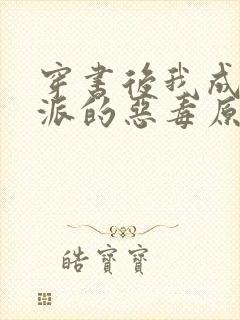 穿书後我成
派的惡毒原
皓寶寶